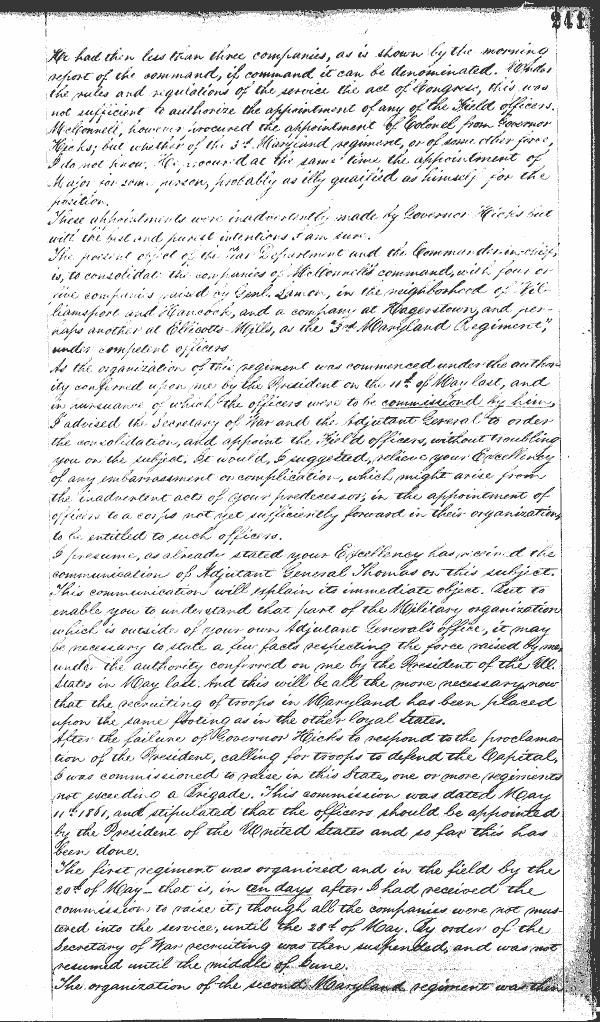 241
He had then less than three companies, as is shown by the morning
report of the command, if command it can be denominated. Under
the rules and regulations of the service the act of Congress, this was
not sufficient to authorize the appointment of any of the Field officers.
McConnell, however, procured the appointment of Colonel from Governor
Hicks; but whether of the 3rd Maryland regiment, or of some other force,
I do not know. He procured at the same time the appointment of
Major for some person, probably as illy qualified as himself for the
position.
These appointments were inadvertently made by Governor Hicks but
with the best and purest intentions I am sure.
The present object of the War Department and the Commander-in-chief,
is, to consolidate the companies of McConnell's command, with four or
five companies raised by Genl. Lamon, in the neighborhood of Wil-
liamsport and Hancock, and a company at Hagerstown, and per-
haps another at Ellicotts-Mills, as the "3rd Maryland Regiment,"
under competent officers.
As the organization of this regiment was commenced under the author-
ity conferred upon me by the President on the 11th of May last, and
in pursuance of which the officers were to be commissioned by him,
I advised the Secretary of War and the Adjutant General to order
the consolidation, and appoint the Field officers, without troubling
you on the subject. It would, I suggested, relieve your Excellency
of any embarrassment or complication, which might arise from
the inadvertent acts of your predecessor, in the appointment of
officers to a corps not yet sufficiently forward in their organization,
to be entitled to such officers.
I presume, as already stated your Excellency has received the
communication of Adjutant General Thomas on this subject.
This communication will explain its immediate object. But to
enable you to understand that part of the Military organization
which is outside of your own Adjutant General's office, it may
be necessary to state a few facts respecting the force raised by me
under the authority conferred on me by the President of the U.
States in May last. And this will be all the more necessary, now
that the recruiting of troops in Maryland has been placed
upon the same footing as in the other loyal States.
After the failure of Governor Hicks to respond to the proclama
tion of the President, calling for troops to defend the Capital,
I was commissioned to raise in this State, one or more regiments
not exceeding a Brigade. This commission was dated May
11th 1861, and stipulated that the officers should be appointed
by the President of the United States and so far this has
been done.
The first regiment was organized and in the field by the
20th of May - that is, in ten days after I had received the
commission to raise it; though all the companies were not mus-
tered into the service, until the 28th of May. By order of the
Secretary of War recruiting was then suspended, and was not
resumed until the middle of June.
The organization of the second Maryland regiment was then